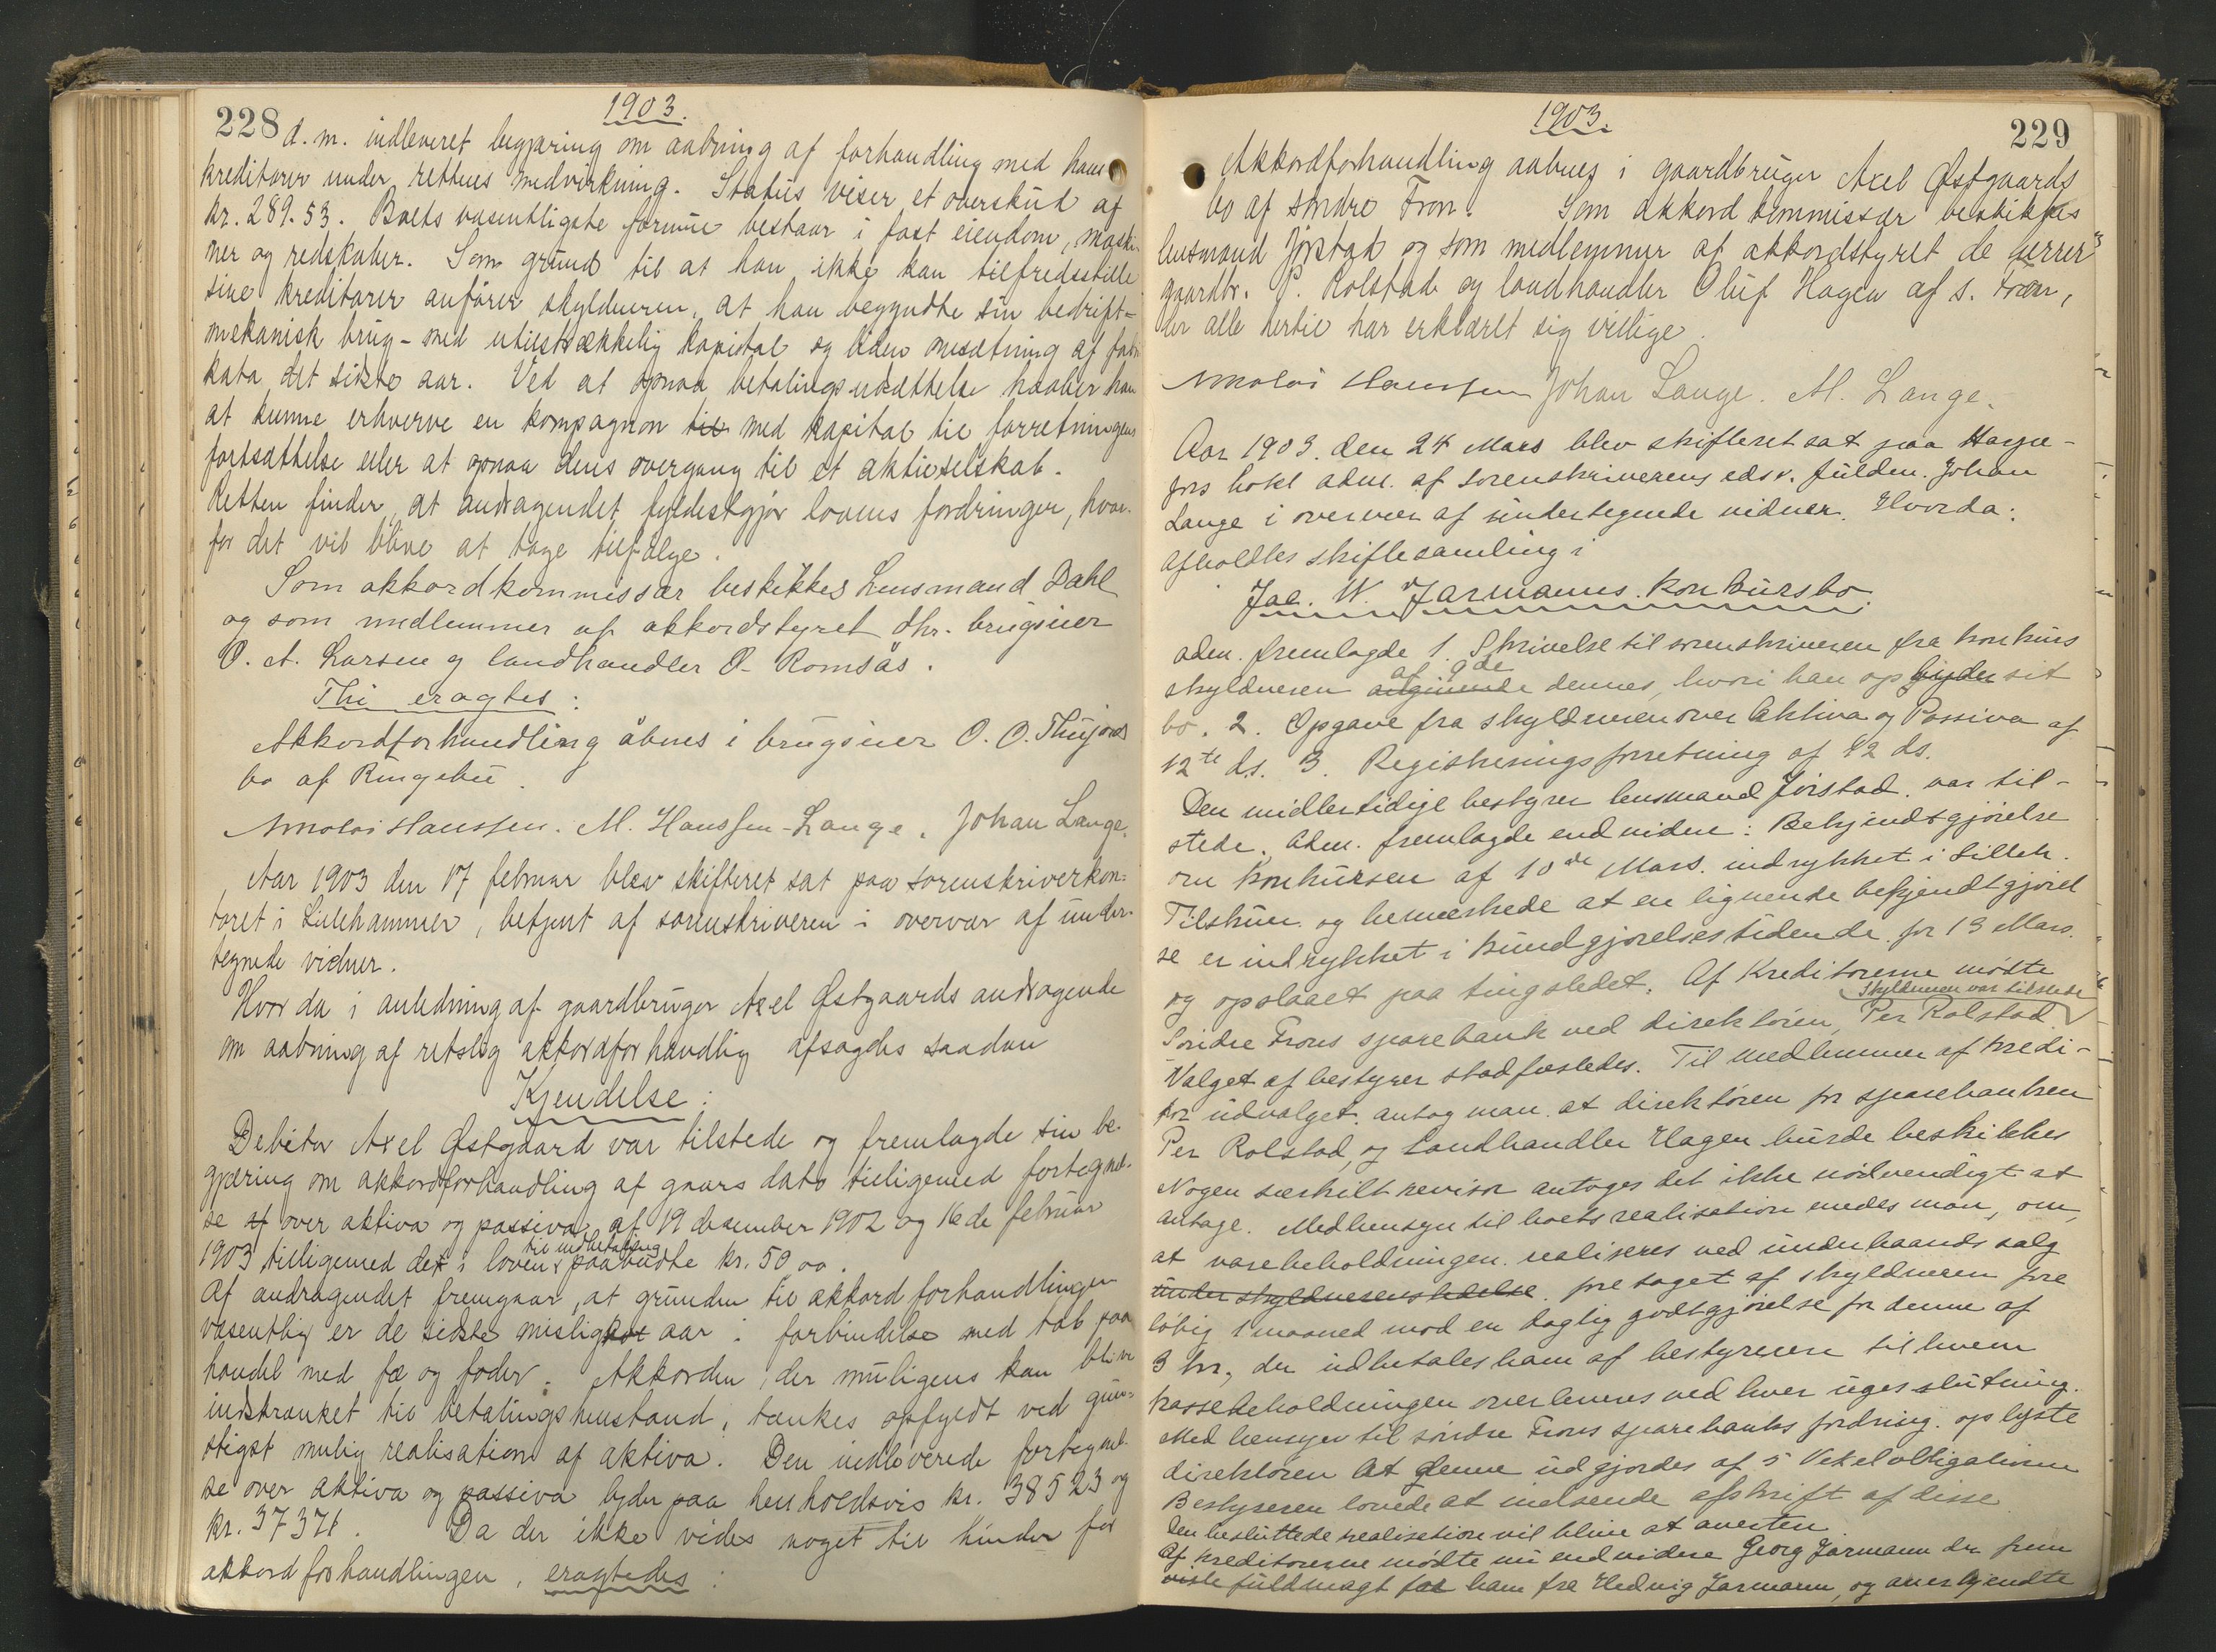 1903.
228
d. m. indleveret begjæring om aabning af forhandling med hans
kreditorer under rettens medvirkning. Status viser et overskud af
kr. 289.53. Boets væsentligste formue bestaar i fast eiendom, maski-
ner og redskaber. Som grund til at han ikke kan tilfredsstille
sine kreditorer anfører skyldneren, at han begyndte sin bedrift-
mekanisk brug - med utilstrækkelig kapital og liden omsætning af fabri
kata det sidste aar. Ved at opnaa betalingsudsættelse haaber han
at kunne erhverve en kompagnon til med kapital til forretningens
fortsættelse eller at opnaa dens overgang til et aktieselskab.
Retten finder, at andragendet fyldestgjør lovens fordringer, hvor-
for det vil blive at tage tilfølge.
Som akkordkommissær beskikkes Lensmand Dahl
og som medlemmer af akkordstyret dhr. brugseier
O. A. Larsen og landhandler O. Romsås.
Thi eragtes:
Akkordforhandling åbnes i brugseier O. O. Thujords
bo af Ringebu.
Nikolai Hanssen. M. Hanssen-Lange. Johan Lange.
Aar 1903 den 17 februar blev skifteret sat paa sorenskriverkon-
toret i Lillehammer, betjent af sorenskriveren i overvær af under-
tegnede vidner.
Hvor da i anledning af gaardbruger Axel Østgaards andragende
om aabning af retslig akkordforhandlig afsagdes saadan
Kjendelse:
Debitor Axel Østgaard var tilstede og fremlagde sin be-
gjæring om akkordforhandling af gaars dato tilligemed fortegnel-
se af over aktiva og passiva af 19 desember 1902 og 16de februar
til indbetaling
1903 tilligemed det i loven paabudte kr. 50 oo.
Af andragendet fremgaar, at grunden til akkordforhandlingen
væsentlig er de sidste mislige aar i forbindelse med tab paa
handel med fæ og foder. Akkorden, der muligens kan blive
indskrænket til betalingshenstand, tænkes opfyldt ved gun-
stigst mulig realisation af aktiva. Den indleverede fortegnel-
se over aktiva og passiva lyder paa henholdsvis kr. 38523 og
kr. 37371. Da der ikke vides noget til hinder for
akkordforhandlingen, eragtedes:
1903.
229
Akkordforhandling aabnes i gaardbruger Axel Østgaards
bo af søndre Fron. Som akkordkommissær beskikkes
lensmand Jørstad og som medlemmer af akkordstyret de herrer
gaardbr. P. Rolstad og landhandler Oluf Hagen af s. Fron,
der alle hertil har erklæret sig villige.
Nikolai Hanssen Johan Lange. M. Lange.
Aar 1903. den 24 Mars blev skifteret sat paa
hotel adm. af sorenskriverens edsv. fuldm. Johan
Lange i overvær af undertegnede vidner. Hvorda:
afholdtes skiftesamling i
Jac. W. Jarmanns konkursbo.
adm. fremlagde 1. Skrivelse til sorenskriveren fra konkurs
af 9de
skyldneren angivende dennes, hvori han opbyder sit
bo. 2. Opgave fra skyldneren over Aktiva og Passiva af
12te ds. 3. Registreringsforretning af 12 ds.
Den midlertidige bestyrer lensmand Jørstad. var til-
stede. Adm. fremlagde endvidere: Bekjendtgjørelse
om konkursen af 10de Mars. indrykket i Lilleh.
Tilskuer. og bemerkede at en lignende bekjendtgjørel
se er indrykket i kundgjørelsestidende. for 13 Mars.
og opslaaet paa tingstedet. Af Kreditorerne mødte
Skyldneren var tilstede
Søndre Frons sparebank ved direktøren, Per Rolstad.
Valget af bestyrer stadfæstedes. Til medlemmer af kredi-
tor udvalget. antog man. at direktøren for sparebanken
Per Rolstad, og Landhandler Hagen burde beskikkes
Nogen særskilt revisor antoges det ikke nødvendigt at
antage. Medhensyn til boets realisation enedes man, om,
at varebeholdningen. realiseres ved underhaands salg
under skyldnerens ledelse. foretaget af skyldneren fore
løbig 1 maaned mod en daglig godtgjørelse for denne af
3 kr., der udbetales ham af bestyreren til hvem
kassebeholdningen overleveres ved hver uges slutning.
Med hensyn til søndre Frons sparebanks fordring. oplyste
direktøren At denne udgjordes af 5 Vekselobligationer
Bestyreren lovede at indsende afskrift af disse
Den besluttede realisation vil blive at avertere.
Af kreditorerne mødte nu endvidere Georg Jarmann der frem
viste fuldmagt for ham fra Hedvig Jarmann, og anerkjendte